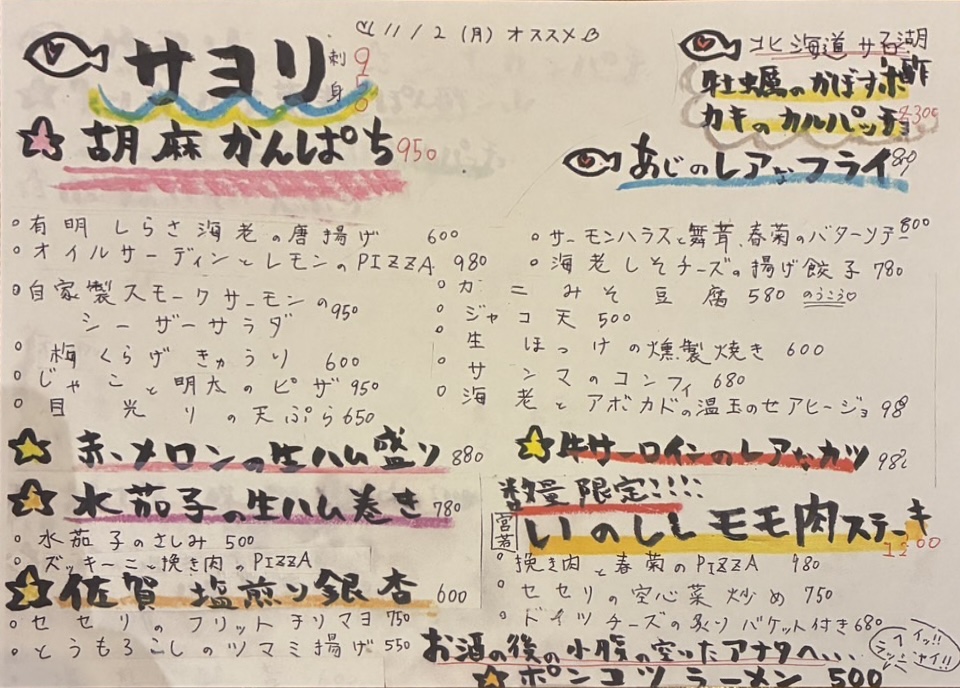 11/2 (月) オススメ
サヨリ 刺身 950
胡麻かんぱち 950
北海道サロマ湖
牡蠣のかぼすポン酢
カキのカルパッチョ
あじのレアなフライ
。有明しらさ海老の唐揚げ 600
。オイルサーディンとレモンのPIZZA 980
。自家製スモークサーモンの
シーザーサラダ 950
。梅くらげきゅうり 600
。じゃこと明太のピザ 950
。目光りの天ぷら 650
。サーモンハラスと舞茸、春菊のバターソテー 800
。海老しそチーズの揚げ餃子 780
。カニみそ豆腐 580 のうこう♡
。ジャコ天 500
。生ほっけの燻製焼き 600
。サンマのコンフィ 680
。海老とアボカドの温玉のせアヒージョ 980
赤メロンの生ハム盛り 880
水茄子の生ハム巻き 780
。水茄子のさしみ 500
。ズッキーニと挽き肉のPIZZA
佐賀 塩煎り銀杏 600
。セセリのフリットチリマヨ 750
。とうもろこしのツマミ揚げ 550
牛サーロインのレアなカツ
数量限定!!!!
いのししモモ肉ステーキ
。挽き肉と春菊のPIZZA 980
。セセリの空心菜炒め 750
。ドイツチーズの炙りバケット付き 680
お酒の後の小腹の空いたアナタへ...
ポンコツラーメン 500
ヘイッ!!
ラッシャイ!!